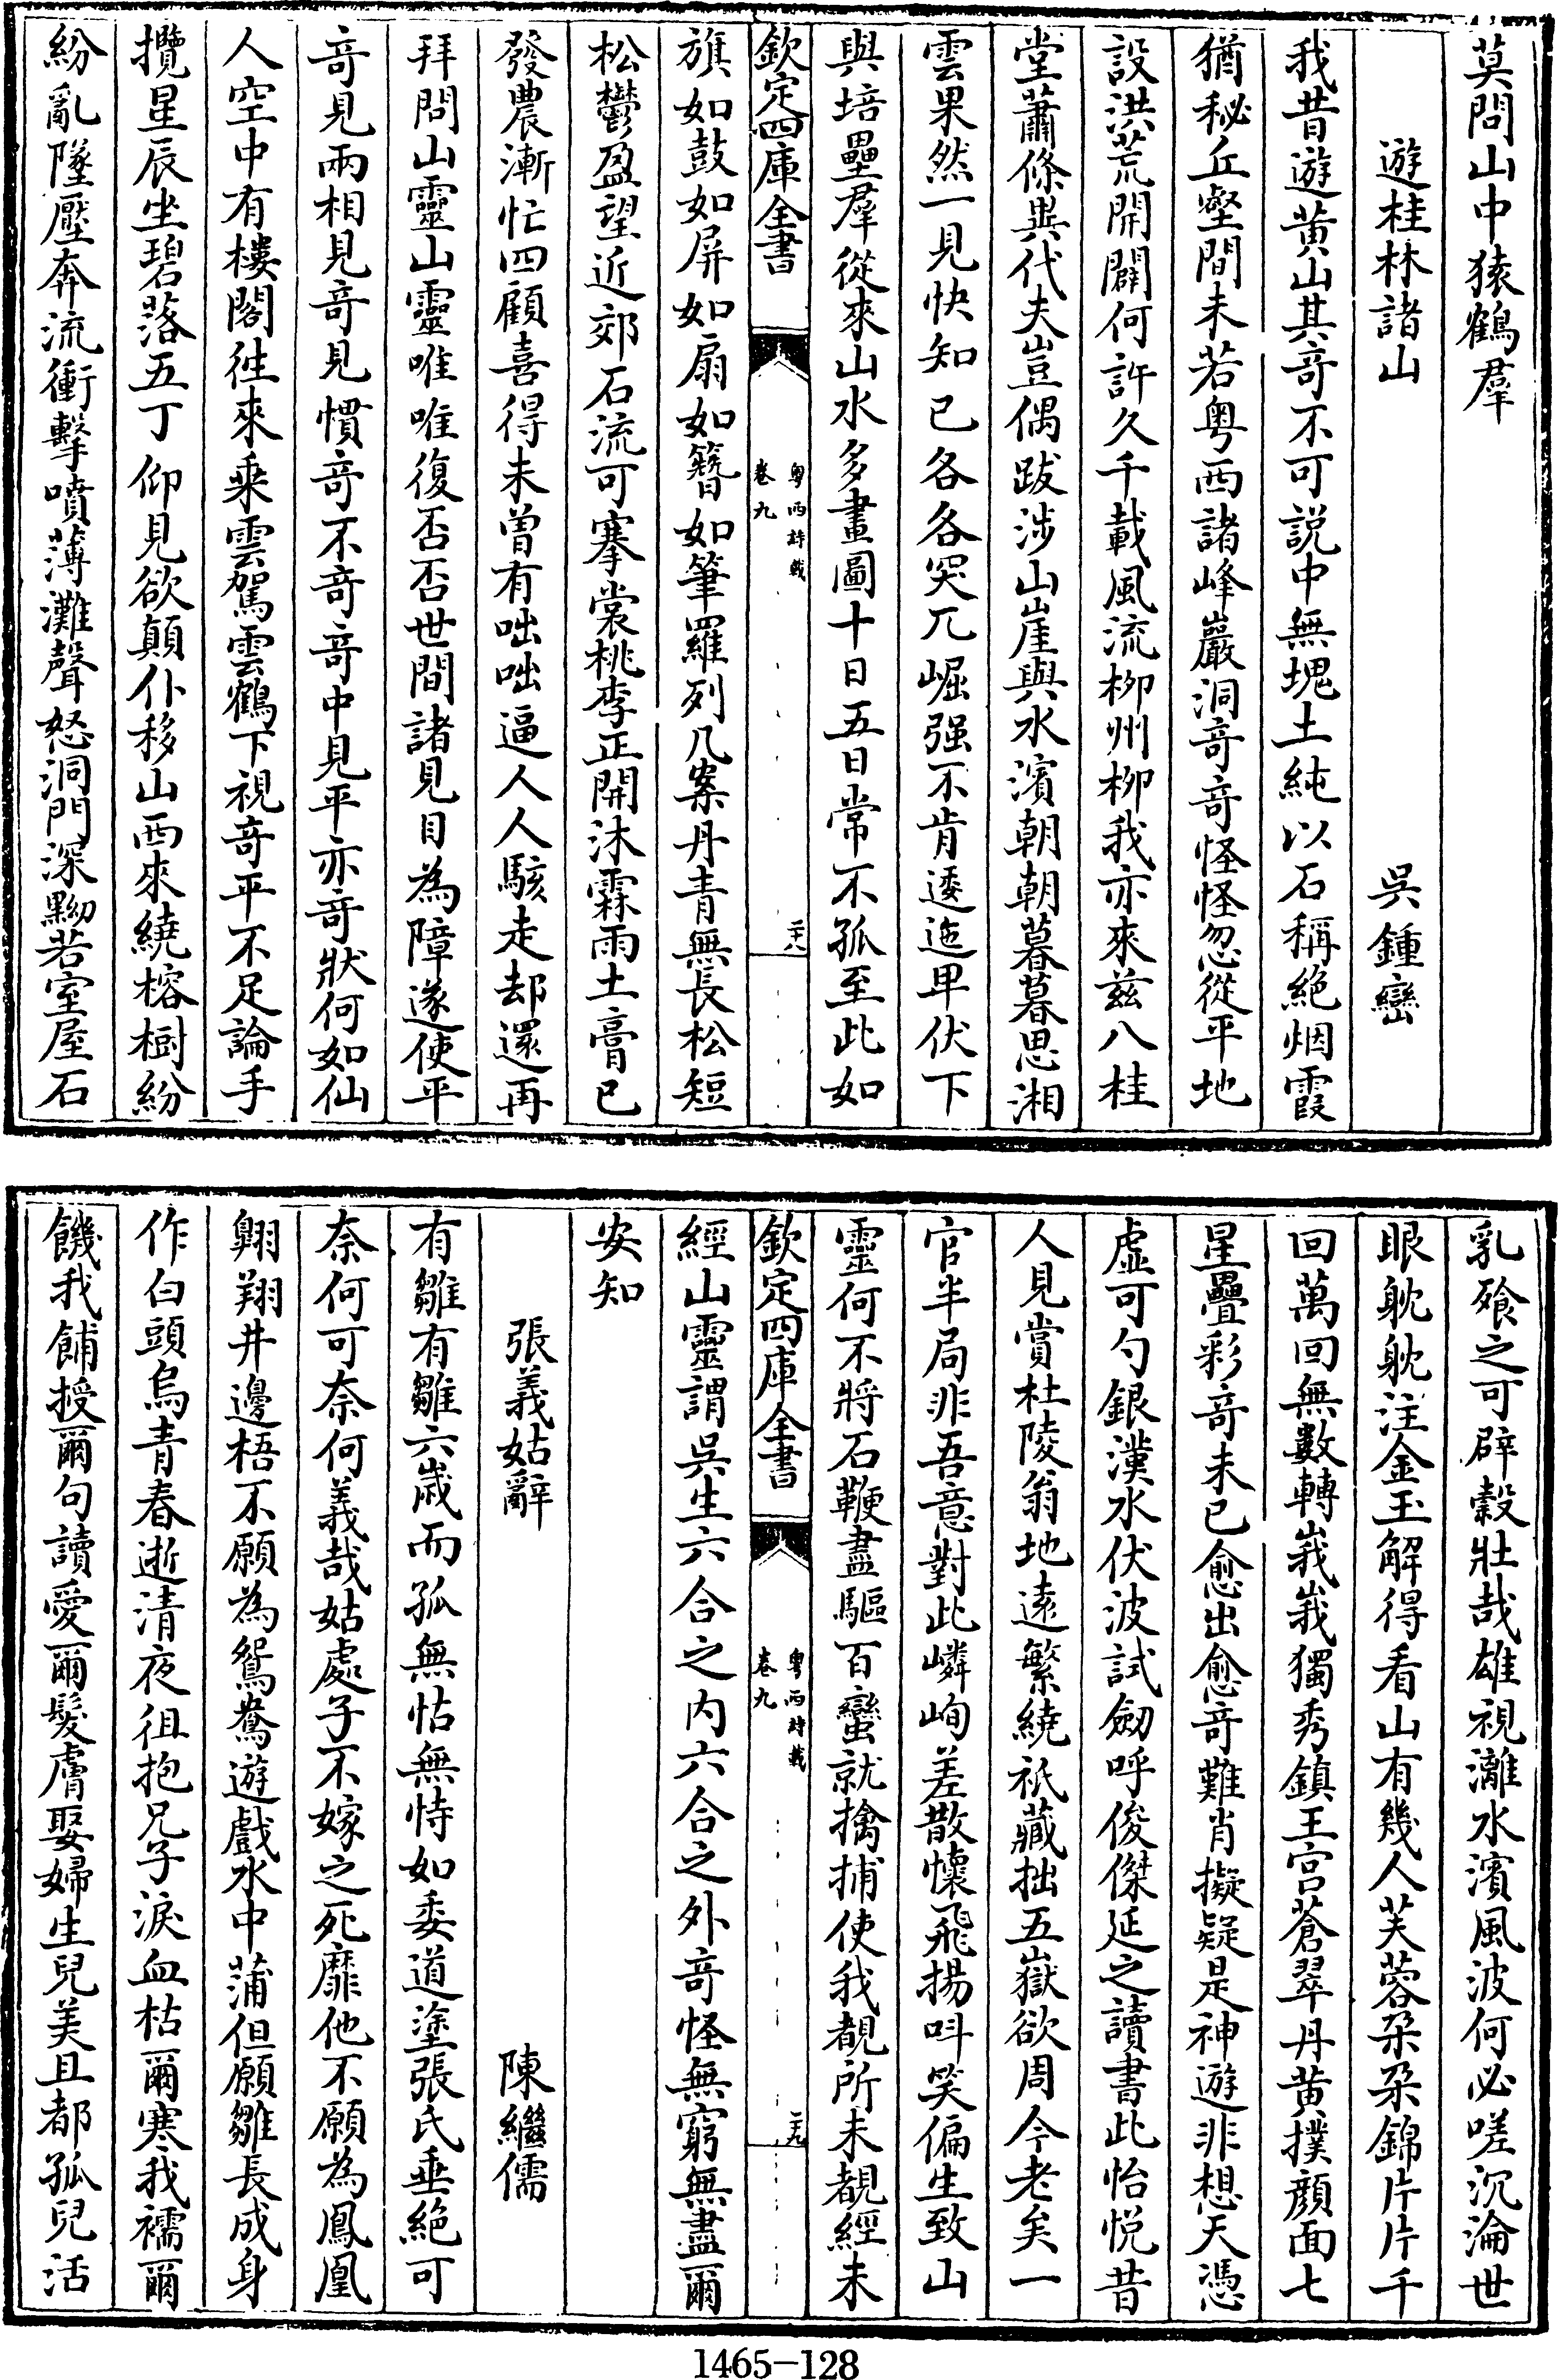 莫問山中猿鶴羣
遊桂林諸山　吳鍾巒
我昔遊黄山其竒不可説中無塊土純以石稱絶烟霞
猶秘丘壑間未若粤西諸峰巖洞竒竒怪怪忽從平地
設洪荒開闢何許久千載風流柳州柳我亦來兹八桂
堂蕭條異代夫豈偶跋涉山崖與水濱朝朝暮暮思湘
雲果然一見快知已各各突兀崛强不肯逶迤卑伏下
與培壘羣從來山水多畫圖十日五日常不孤至此如
欽定四庫全書
粤西詩載
卷九
二十八
旗如鼓如屏如扇如簪如筆羅列几案丹青無長松短
松鬱盈望近郊石流可搴裳桃李正開沐霖雨土膏已
發農漸忙四顧喜得未曾有咄咄逼人人駭走却還再
拜問山靈山靈唯唯復否否世間諸見目為障遂使平
竒見兩相見竒見慣竒不竒竒中見平亦竒狀何如仙
人空中有樓閣徃來乗雲駕雲鶴下視竒平不足論手
攬星辰坐碧落五丁仰見欲顛仆移山西來繞榕樹紛
紛亂墜壓奔流衝擊噴薄灘聲怒洞門深黝若室屋石
乳飱之可辟穀壯哉雄視灕水濱風波何必嗟沉淪世
眼躭躭注金玉解得看山有幾人芙蓉朶朶錦片片千
回萬回無數轉峩峩獨秀鎮王宫蒼翠丹黄撲顔面七
星疊彩竒未已愈出愈竒難肖擬疑是神遊非想天憑
虚可勺銀漢水伏波試劒呼俊傑延之讀書此怡悦昔
人見賞杜陵翁地逺繁繞祇藏拙五嶽欲周今老矣一
官半局非吾意對此嶙峋差散懷飛揚呌笑偏生致山
靈何不將石鞭盡驅百蠻就擒捕使我覩所未覩經未
欽定四庫全書
粤西詩載
卷九
二十九
經山靈謂吳生六合之内六合之外竒怪無窮無盡爾
安知
張義姑辭　陳繼儒
有雛有雛六歳而孤無怙無恃如委道塗張氏垂絶可
奈何可奈何義哉姑處子不嫁之死靡他不願為鳳凰
翺翔井邊梧不願為鴛鴦遊戲水中蒲但願雛長成身
作白頭烏青春逝清夜徂抱兄子淚血枯爾寒我襦爾
饑我餔授爾句讀愛爾髮膚娶婦生兒美且都孤兒活
1465-128